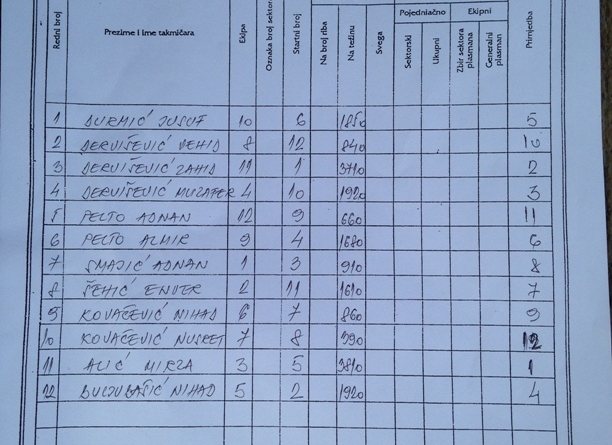 Pojedinačno Ekipni
Redni broj Prezime i ime takmičara Ekipa Oznaka broj sektora Startni broj Na broj riba Na težinu Svega Sektorski Ukupni Zbir sektora plasmana Generalni plasman Primjedba
1 DURMIĆ JUSUF 10 6 1850 5
2 DERVIŠEVIĆ VEHID 8 12 840 10
3 DERVIŠEVIĆ ZAHID 11 1 3710 2
4 DERVIŠEVIĆ MUZAFER 4 10 1920 3
5 PELTO ADNAN 12 9 660 11
6 PELTO ALMIR 9 4 1680 6
7 SMAJIĆ ADNAN 1 3 910 8
8 ŠEHIĆ ENVER 2 11 1610 7
9 KOVAČEVIĆ NIHAD 6 7 860 9
10 KOVAČEVIĆ NUSRET 7 8 390 12
11 ALIĆ MIRZA 3 5 3810 1
12 BULJUBAŠIĆ NIHAD 5 2 1920 4